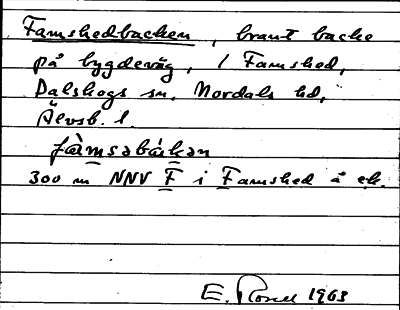 Famshedbacken, brant backe
på bygdeväg, i Famshed,
Dalskogs sn, Nordals hd,
Älvsb. l.
fàmsəbákən
300 m NNV F i Famshed å ek.
E. Rosell 1963